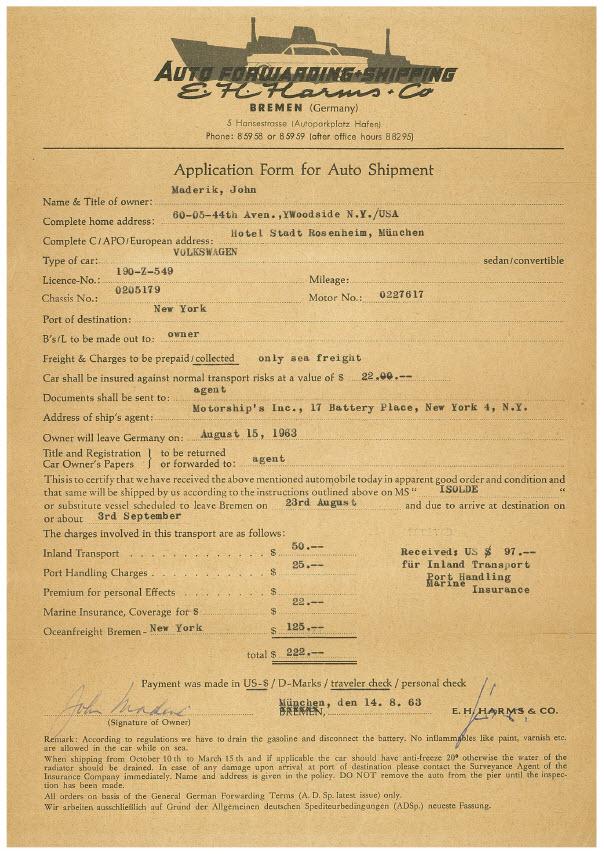 AUTO FORWARDING + SHIPPING
E. H. Harms + Co
BREMEN (Germany)
5 Hansestrasse (Autoparkplatz Hafen)
Phone: 85958 or 85959 (after office hours 88295)
Application Form for Auto Shipment
Name & Title of owner: Maderik, John
Complete home address: 60-05-44th Aven.,YWoodside N.Y./USA
Complete C/APO/European address: Hotel Stadt Rosenheim, München
Type of car: VOLKSWAGEN sedan/convertible
Licence-No.: 190-Z-549 Mileage:
Chassis No.: 0205179 Motor No.: 0227617
Port of destination: New York
B's/L to be made out to: owner
Freight & Charges to be prepaid/collected only sea freight
Car shall be insured against normal transport risks at a value of $ 22.00.--
Documents shall be sent to: agent
Address of ship's agent: Motorship's Inc., 17 Battery Place, New York 4, N.Y.
Owner will leave Germany on: August 15, 1963
Title and Registration } to be returned
Car Owner's Papers } or forwarded to: agent
This is to certify that we have received the above mentioned automobile today in apparent good order and condition and
that same will be shipped by us according to the instructions outlined above on MS " ISOLDE "
or substitute vessel scheduled to leave Bremen on 23rd August and due to arrive at destination on
or about 3rd September
The charges involved in this transport are as follows:
Inland Transport . . . . . . . . . . . . $ 50.-- Received: US $ 97.--
Port Handling Charges . . . . . . . . . $ 25.-- für Inland Transport
Port Handling
Premium for personal Effects . . . . . . $ Marine Insurance
Marine Insurance, Coverage for $ $ 22.--
Oceanfreight Bremen- New York $ 125.--
total $ 222.--
Payment was made in US-$ / D-Marks / traveler check / personal check
München, den 14. 8. 63
BREMEN, E. H. HARMS & CO.
(Signature of Owner)
Remark: According to regulations we have to drain the gasoline and disconnect the battery. No inflammables like paint, varnish etc.
are allowed in the car while on sea.
When shipping from October 10th to March 15th and if applicable the car should have anti-freeze 20° otherwise the water of the
radiator should be drained. In case of any damage upon arrival at port of destination please contact the Surveyance Agent of the
Insurance Company immediately. Name and address is given in the policy. DO NOT remove the auto from the pier until the inspec-
tion has been made.
All orders on basis of the General German Forwarding Terms (A. D. Sp. latest issue) only.
Wir arbeiten ausschließlich auf Grund der Allgemeinen deutschen Spediteurbedingungen (ADSp.) neueste Fassung.